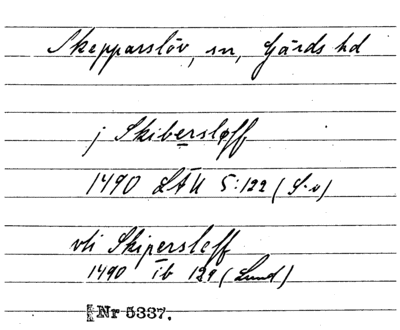 Skepparslöv, sn, Gärds hd
j Skibersløff
1490 LÄU 5:122 (S.o)
vti Skipersleff
1490 ib 129 (Lund)
Nr 5337.